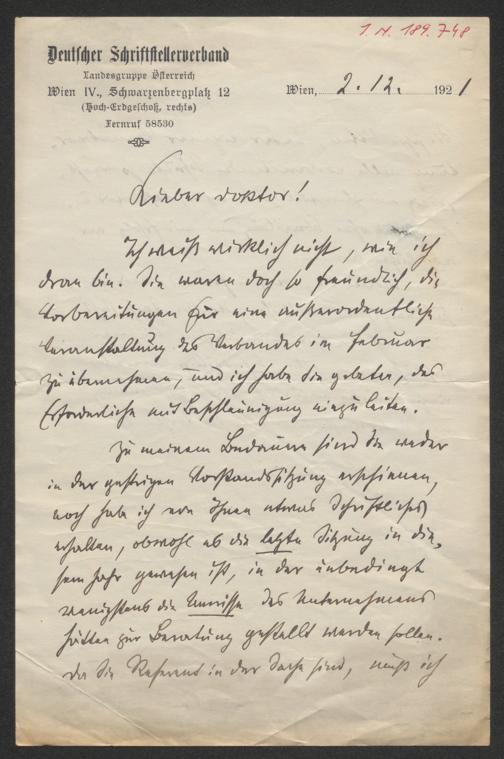 I. N. 189.748
Deutscher Schriftstellerverband
Landesgruppe Österreich
Wien IV., Schwarzenbergplatz 12
(Hoch-Erdgeschoß, rechts)
Fernruf 58530
Wien, 2. 12. 1921
Lieber Doktor!
Ich weiß wirklich nicht, wie ich
dran bin. Sie waren doch so freundlich, die
Vorbereitungen für eine außerordentliche
Veranstaltung des Verbandes im Februar
zu übernehmen, und ich habe Sie gebeten, das
Erforderliche mit Beschleunigung einzuleiten.
Zu meinem Bedauern sind Sie weder
in der gestrigen Vorstandssitzung erschienen,
noch habe ich von Ihnen etwas Schriftliches
erhalten, obwohl es die letzte Sitzung in die-
sem Jahr gewesen ist, in der unbedingt
wenigstens die Umrisse des Unternehmens
hätten zur Beratung gestellt werden sollen.
Da Sie Referent in der Sache sind, muß ich